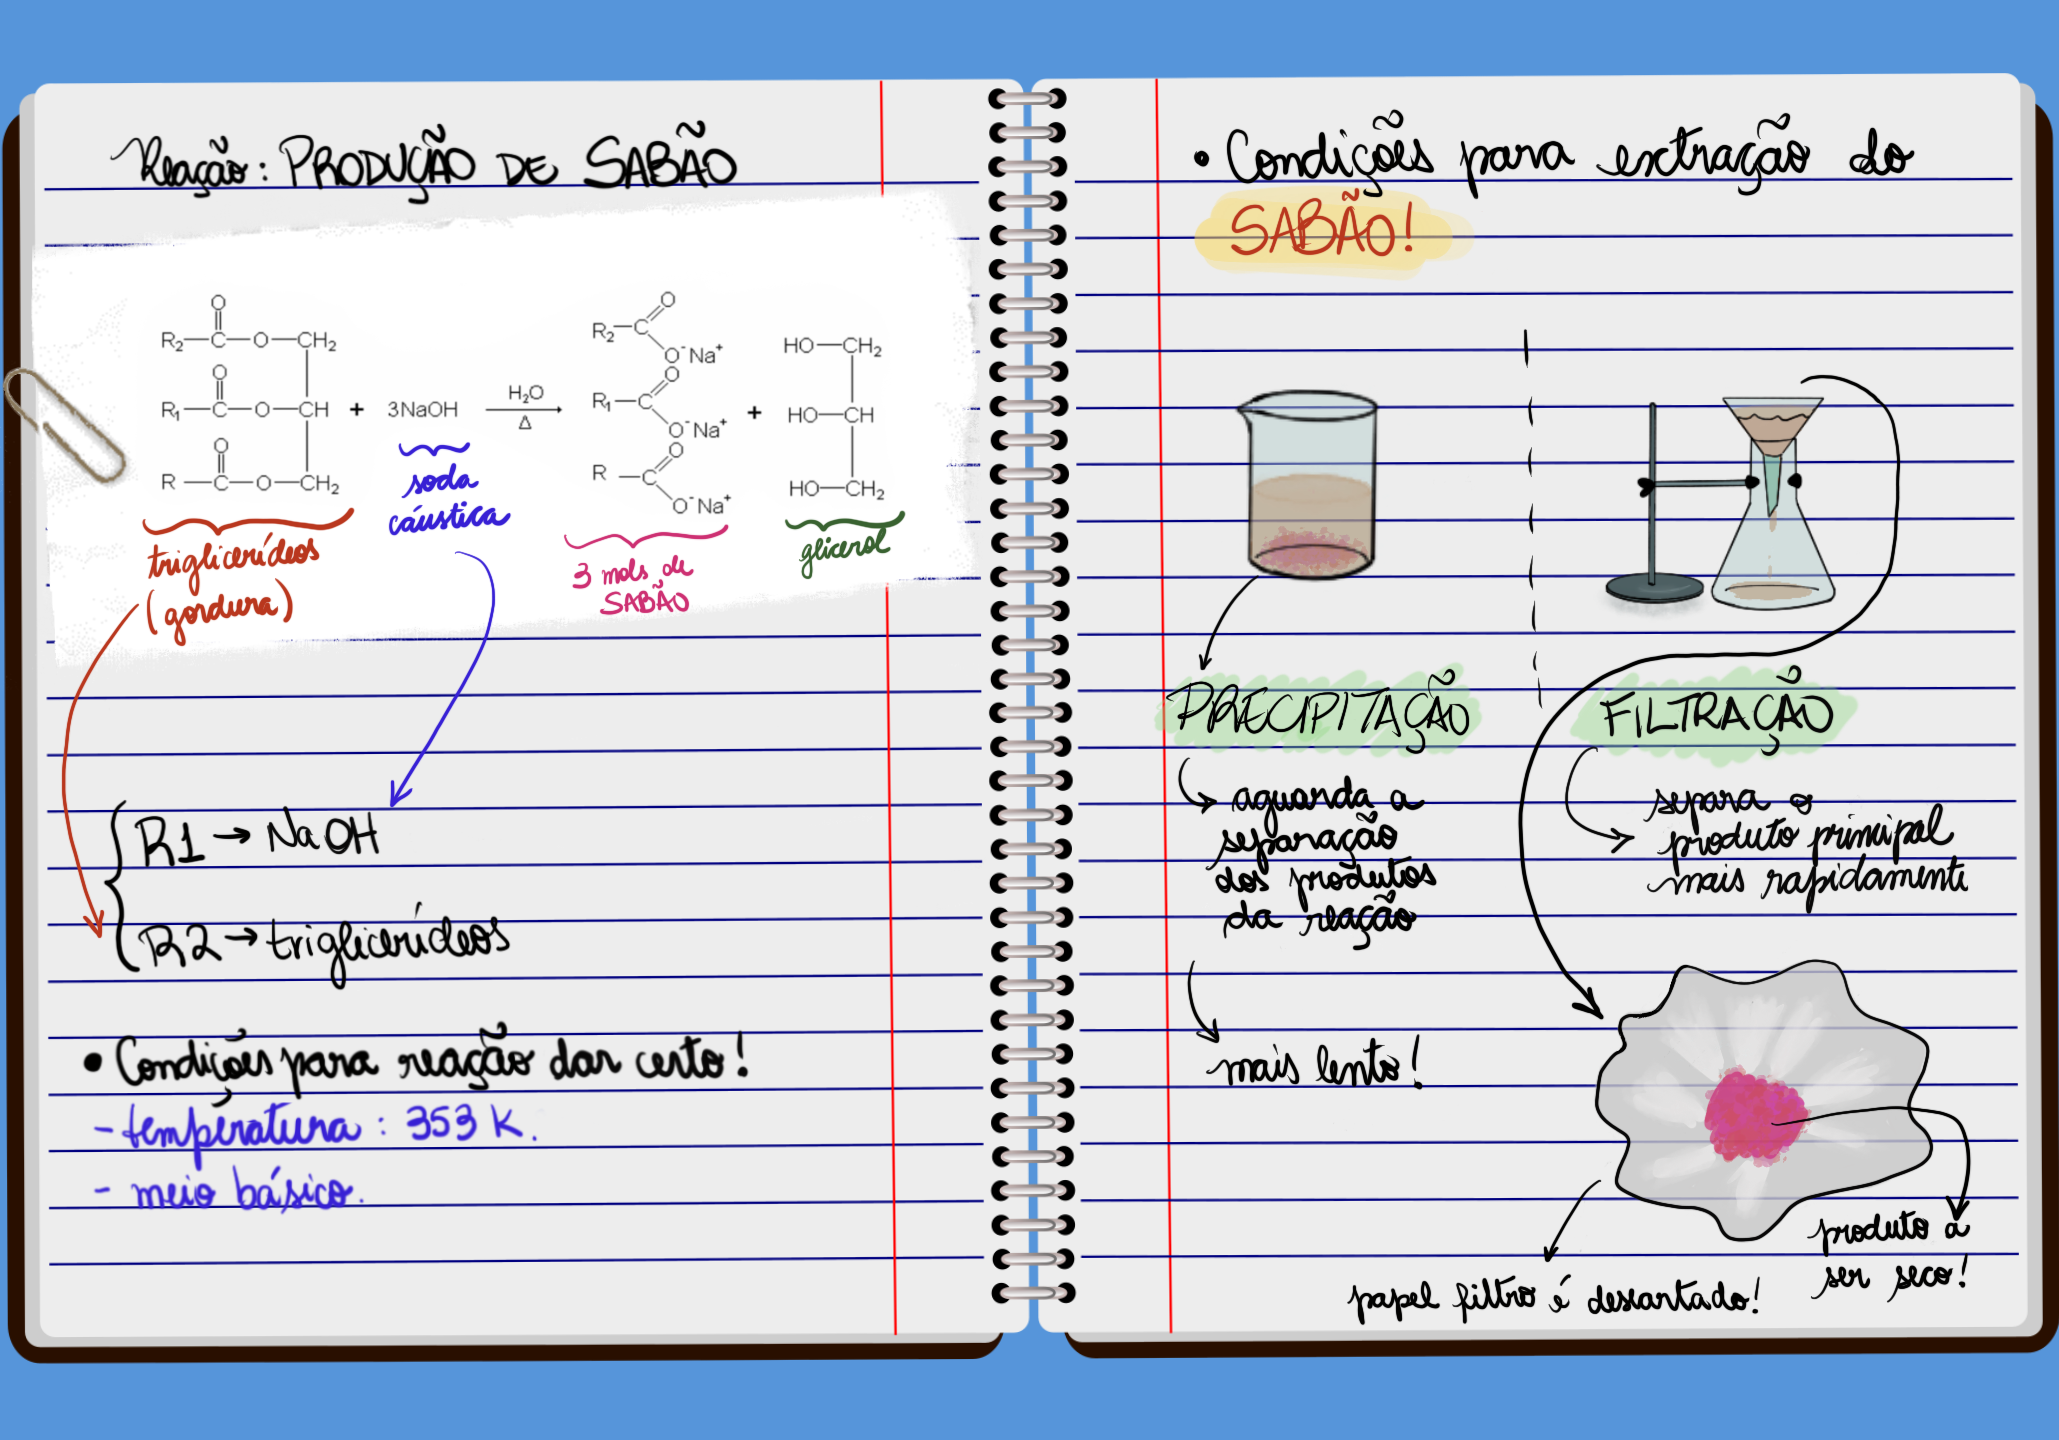 Reação: PRODUÇÃO DE SABÃO
O
R₂—C—O—CH₂
O
R₁—C—O—CH + 3NaOH
O
R—C—O—CH₂
H₂O
Δ
O
R₂—C
O⁻Na⁺
O
R₁—C
O⁻Na⁺
O
R—C
O⁻Na⁺
+
HO—CH₂
HO—CH
HO—CH₂
soda
cáustica
triglicerídeos
(gordura)
3 mols de
SABÃO
glicerol
R1 → NaOH
R2 → triglicerídeos
• Condições para reação dar certo!
- temperatura: 353 K.
- meio básico.
• Condições para extração do
SABÃO!
PRECIPITAÇÃO
aguarda a
separação
dos produtos
da reação
mais lento!
FILTRAÇÃO
separa o
produto principal
mais rapidamente
produto a
ser seco!
papel filtro é descartado!